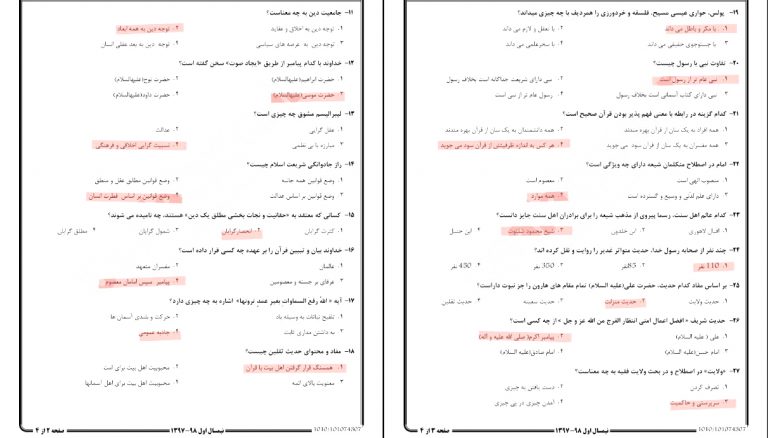 ۱۱- جامعیت دین به چه معناست؟
۱. توجه دین به اخلاق و عقاید ۲. توجه دین به همه ابعاد
۳. توجه دین به عرصه های سیاسی ۴. توجه دین به بعد عقلی انسان
۱۲- خداوند با کدام پیامبر از طریق «ایجاد صوت» سخن گفته است؟
۱. حضرت ابراهیم(علیهالسلام) ۲. حضرت نوح(علیهالسلام)
۳. حضرت موسی(علیهالسلام) ۴. حضرت داود(علیهالسلام)
۱۳- لیبرالیسم مشوق چه چیزی است؟
۱. عقل گرایی ۲. عدالت
۳. مبارزه با بی نظمی ۴. نسبیت گرایی اخلاقی و فرهنگی
۱۴- راز جاودانگی شریعت اسلام چیست؟
۱. وضع قوانین همه جانبه ۲. وضع قوانین مطابق عقل و منطق
۳. وضع قوانین بر اساس عدالت ۴. وضع قوانین بر اساس فطرت انسان
۱۵- کسانی که معتقد به «حقانیت و نجات بخشی مطلق یک دین» هستند، چه نامیده می شوند؟
۱. کثرت گرایان ۲. انحصارگرایان ۳. شمول گرایان ۴. مطلق گرایان
۱۶- خداوند بیان و تبیین قرآن را بر عهده چه کسی قرار داده است؟
۱. عالمان ۲. مفسران متعهد
۳. عرفای برجسته و معصومین ۴. پیامبر سپس امامان معصوم
۱۷- آیه « اللهُ رفع السماوات بغیر عمد ترونها» اشاره به چه چیزی دارد؟
۱. تلقیح نباتات به وسیله باد ۲. حرکت و بلندی آسمان ها
۳. نه داشتن مداری ثابت ۴. جاذبه عمومی
۱۸- مفاد و محتوای حدیث ثقلین چیست؟
۱. همسنگ قرار گرفتن اهل بیت با قرآن ۲. محبوبیت اهل بیت برای امت
۳. معنویت بالای ائمه ۴. محبوبیت اهل بیت برای اهل آسمانها
نیمسال اول ۹۸-۱۳۹۷ 1010/101074307
صفحه ۲ از ۴
۱۹- پولس، حواری عیسی مسیح، فلسفه و خردورزی را همردیف با چه چیزی میداند؟
۱. با مکر و باطل می داند ۲. با تعقل و لازم می داند
۳. با جستوجوی حقیقی می داند ۴. با سحرعلمی می داند
۲۰- تفاوت نبی با رسول چیست؟
۱. نبی عام تر از رسول است ۲. نبی دارای شریعت جداگانه است بخلاف رسول
۳. نبی دارای کتاب آسمانی است بخلاف رسول ۴. رسول عام تر از نبی است
۲۱- کدام گزینه در رابطه با معنی فهم پذیر بودن قرآن صحیح است؟
۱. همه افراد به یک سان از قرآن بهره مندند ۲. همه دانشمندان به یک سان از قرآن بهره مندند
۳. همه مفسران به یک سان از قرآن سود می جویند ۴. هر کس به اندازه ظرفیتش از قرآن سود می جوید
۲۲- امام در اصطلاح متکلمان شیعه دارای چه ویژگی است؟
۱. منصوب الهی است ۲. معصوم است
۳. دارای علم لدنی و وسیع و گسترده است ۴. همه موارد
۲۳- کدام عالم اهل سنت، رسما پیروی از مذهب شیعه را برای برادران اهل سنت جایز دانست؟
۱. اقبال لاهوری ۲. ابن خلدون ۳. شیخ محمود شلتوت ۴. ابن حنبل
۲۴- چند نفر از صحابه رسول خدا، حدیث متواتر غدیر را روایت و نقل کرده اند؟
۱. 110 نفر ۲. 85نفر ۳. 350 نفر ۴. 450 نفر
۲۵- بر اساس مفاد کدام حدیث، حضرت علی(علیه السلام) تمام مقام های هارون را جز نبوت داراست؟
۱. حدیث ولایت ۲. حدیث منزلت ۳. حدیث سفینه ۴. حدیث ثقلین
۲۶- حدیث شریف « افضل اعمال امتی انتظار الفرج من الله عز و جل » از چه کسی است؟
۱. علی ( علیه السلام) ۲. پیامبر اکرم(صلی الله علیه و آله)
۳. امام حسن(علیه السلام) ۴. امام صادق(علیه السلام)
۲۷- «ولایت» در اصطلاح و در بحث ولایت فقیه به چه معناست؟
۱. تصرف کردن ۲. دست یافتن به چیزی
۳. سرپرستی و حاکمیت ۴. آمدن چیزی در پی چیزی
نیمسال اول ۹۸-۱۳۹۷ 1010/101074307
صفحه ۳ از ۴